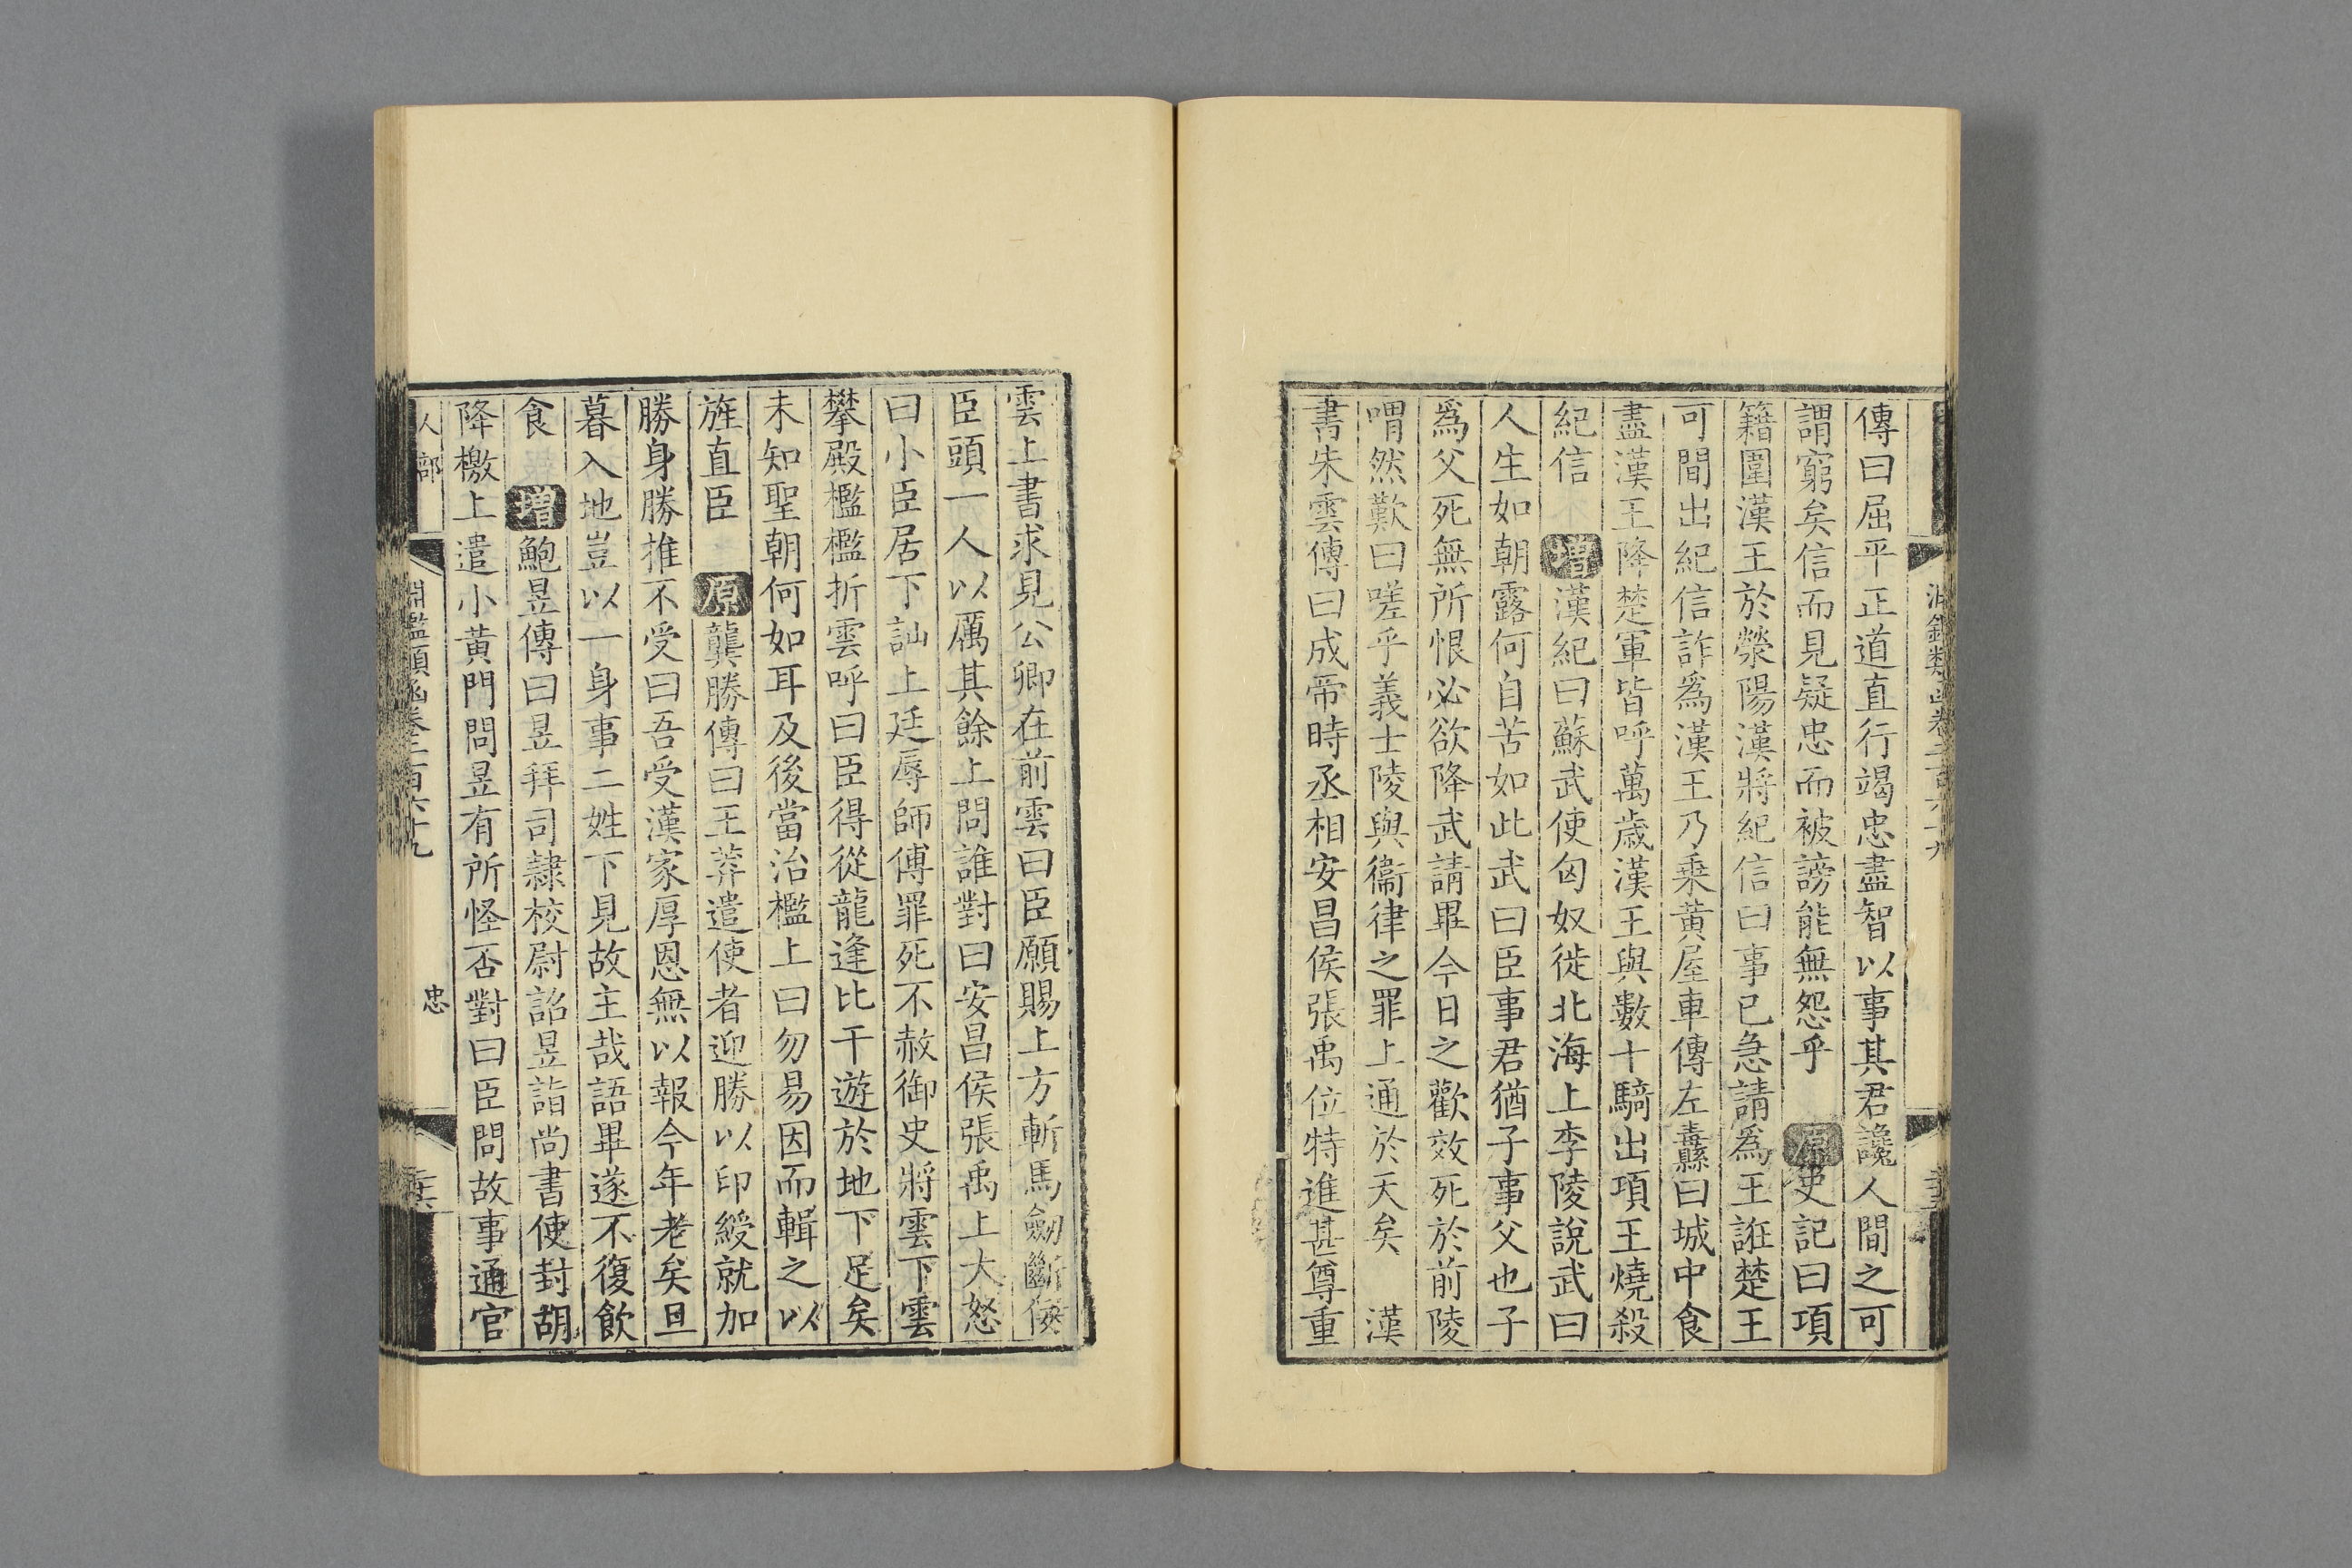 傳曰屈平正道直行竭忠盡智以事其君讒人間之可
謂窮矣信而見疑忠而被謗能無怨乎 原 史記曰項
籍圍漢王於滎陽漢將紀信曰事已急請爲王誑楚王
可間出紀信詐爲漢王乃乗黃屋車傳左纛曰城中食
盡漢王降楚軍皆呼萬歲漢王與數十騎出項王燒殺
紀信 増 漢紀曰蘇武使匈奴徙北海上李陵說武曰
人生如朝露何自苦如此武曰臣事君猶子事父也子
爲父死無所恨必欲降武請畢今日之歡效死於前陵
喟然歎曰嗟乎義士陵與衞律之罪上通於天矣 漢
書朱雲傳曰成帝時丞相安昌侯張禹位特進甚尊重
雲上書求見公卿在前雲曰臣願賜上方斬馬劒斷佞
臣頭一人以厲其餘上問誰對曰安昌侯張禹上大怒
曰小臣居下訕上廷辱師傅罪死不赦御史將雲下雲
攀殿檻檻折雲呼曰臣得從龍逢比干遊於地下足矣
未知聖朝何如耳及後當治檻上曰勿易因而輯之以
旌直臣 原 龔勝傳曰王莽遣使者迎勝以印綬就加
勝身勝推不受曰吾受漢家厚恩無以報今年老矣旦
暮入地豈以一身事二姓下見故主哉語畢遂不復飲
食 増 鮑昱傳曰昱拜司隸校尉詔昱詣尚書使封胡
降檄上遣小黃門問昱有所怪否對曰臣問故事通官
人部 淵鑑類函卷二百六十九 忠